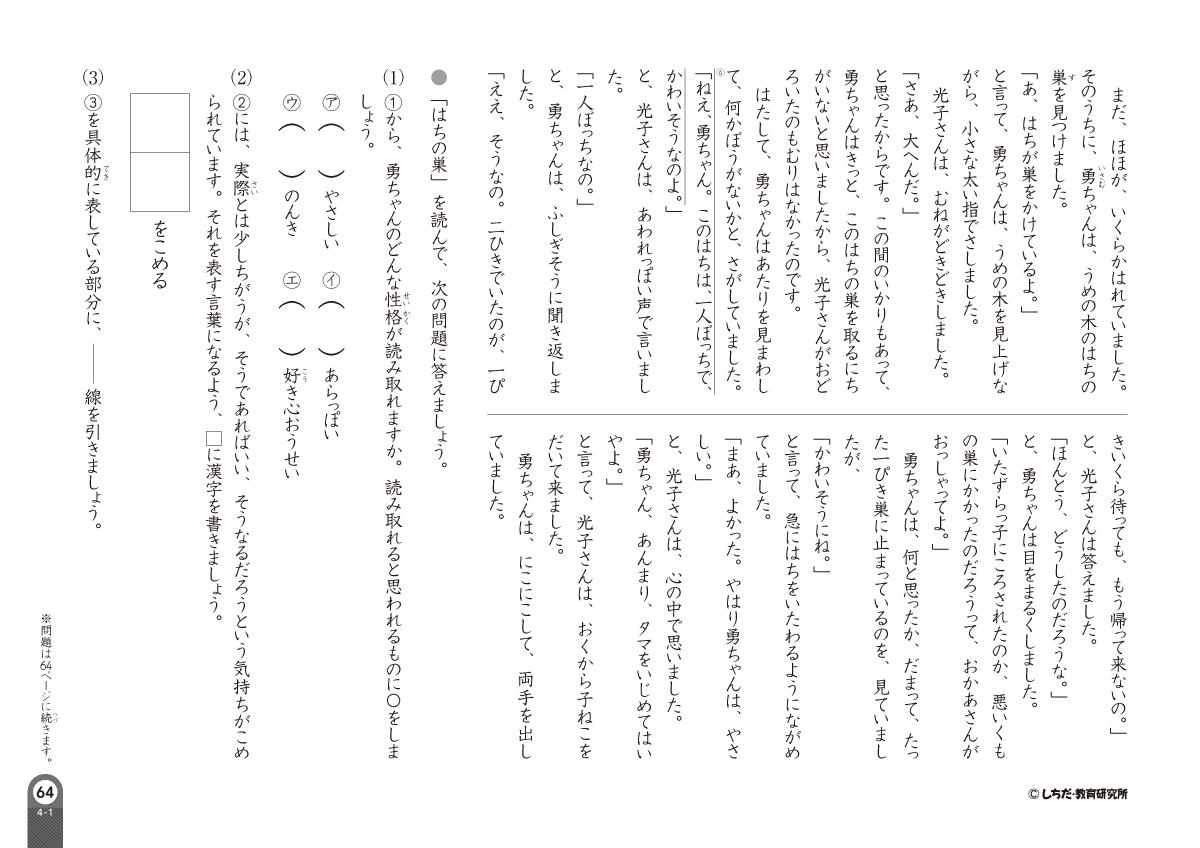 まだ、ほほが、いくらかはれていました。
そのうちに、勇ちゃんは、うめの木のはちの
巣を見つけました。
「あ、はちが巣をかけているよ。」
と言って、勇ちゃんは、うめの木を見上げな
がら、小さな太い指でさしました。
光子さんは、むねがどきどきしました。
「さあ、大へんだ。」
と思ったからです。この間のいかりもあって、
勇ちゃんはきっと、このはちの巣を取るにち
がいないと思いましたから、光子さんがおど
ろいたのもむりはなかったのです。
はたして、勇ちゃんはあたりを見まわし
て、何かぼうがないかと、さがしていました。
⑥「ねえ、勇ちゃん。このはちは、一人ぼっちで、
かわいそうなのよ。」
と、光子さんは、あわれっぽい声で言いまし
た。
「一人ぼっちなの。」
と、勇ちゃんは、ふしぎそうに聞き返しま
した。
「ええ、そうなの。二ひきでいたのが、一ぴ
きいくら待っても、もう帰って来ないの。」
と、光子さんは答えました。
「ほんとう、どうしたのだろうな。」
と、勇ちゃんは目をまるくしました。
「いたずらっ子にころされたのか、悪いくも
の巣にかかったのだろうって、おかあさんが
おっしゃってよ。」
勇ちゃんは、何と思ったか、だまって、たっ
た一ぴき巣に止まっているのを、見ていまし
たが、
「かわいそうにね。」
と言って、急にはちをいたわるようにながめ
ていました。
「まあ、よかった。やはり勇ちゃんは、やさ
しい。」
と、光子さんは、心の中で思いました。
「勇ちゃん、あんまり、タマをいじめてはい
やよ。」
と言って、光子さんは、おくから子ねこを
だいて来ました。
勇ちゃんは、にこにこして、両手を出し
ていました。
●「はちの巣」を読んで、次の問題に答えましょう。
(1) ①から、勇ちゃんのどんな性格が読み取れますか。読み取れると思われるものに○をしま
しょう。
㋐（　　）やさしい　㋑（　　）あらっぽい
㋒（　　）のんき　㋓（　　）好き心おうせい
(2) ②には、実際とは少しちがうが、そうであればいい、そうなるだろうという気持ちがこめ
られています。それを表す言葉になるよう、□に漢字を書きましょう。
をこめる
(3) ③を具体的に表している部分に、――線を引きましょう。
※問題は64ページに続きます。
64
4-1
© しちだ・教育研究所